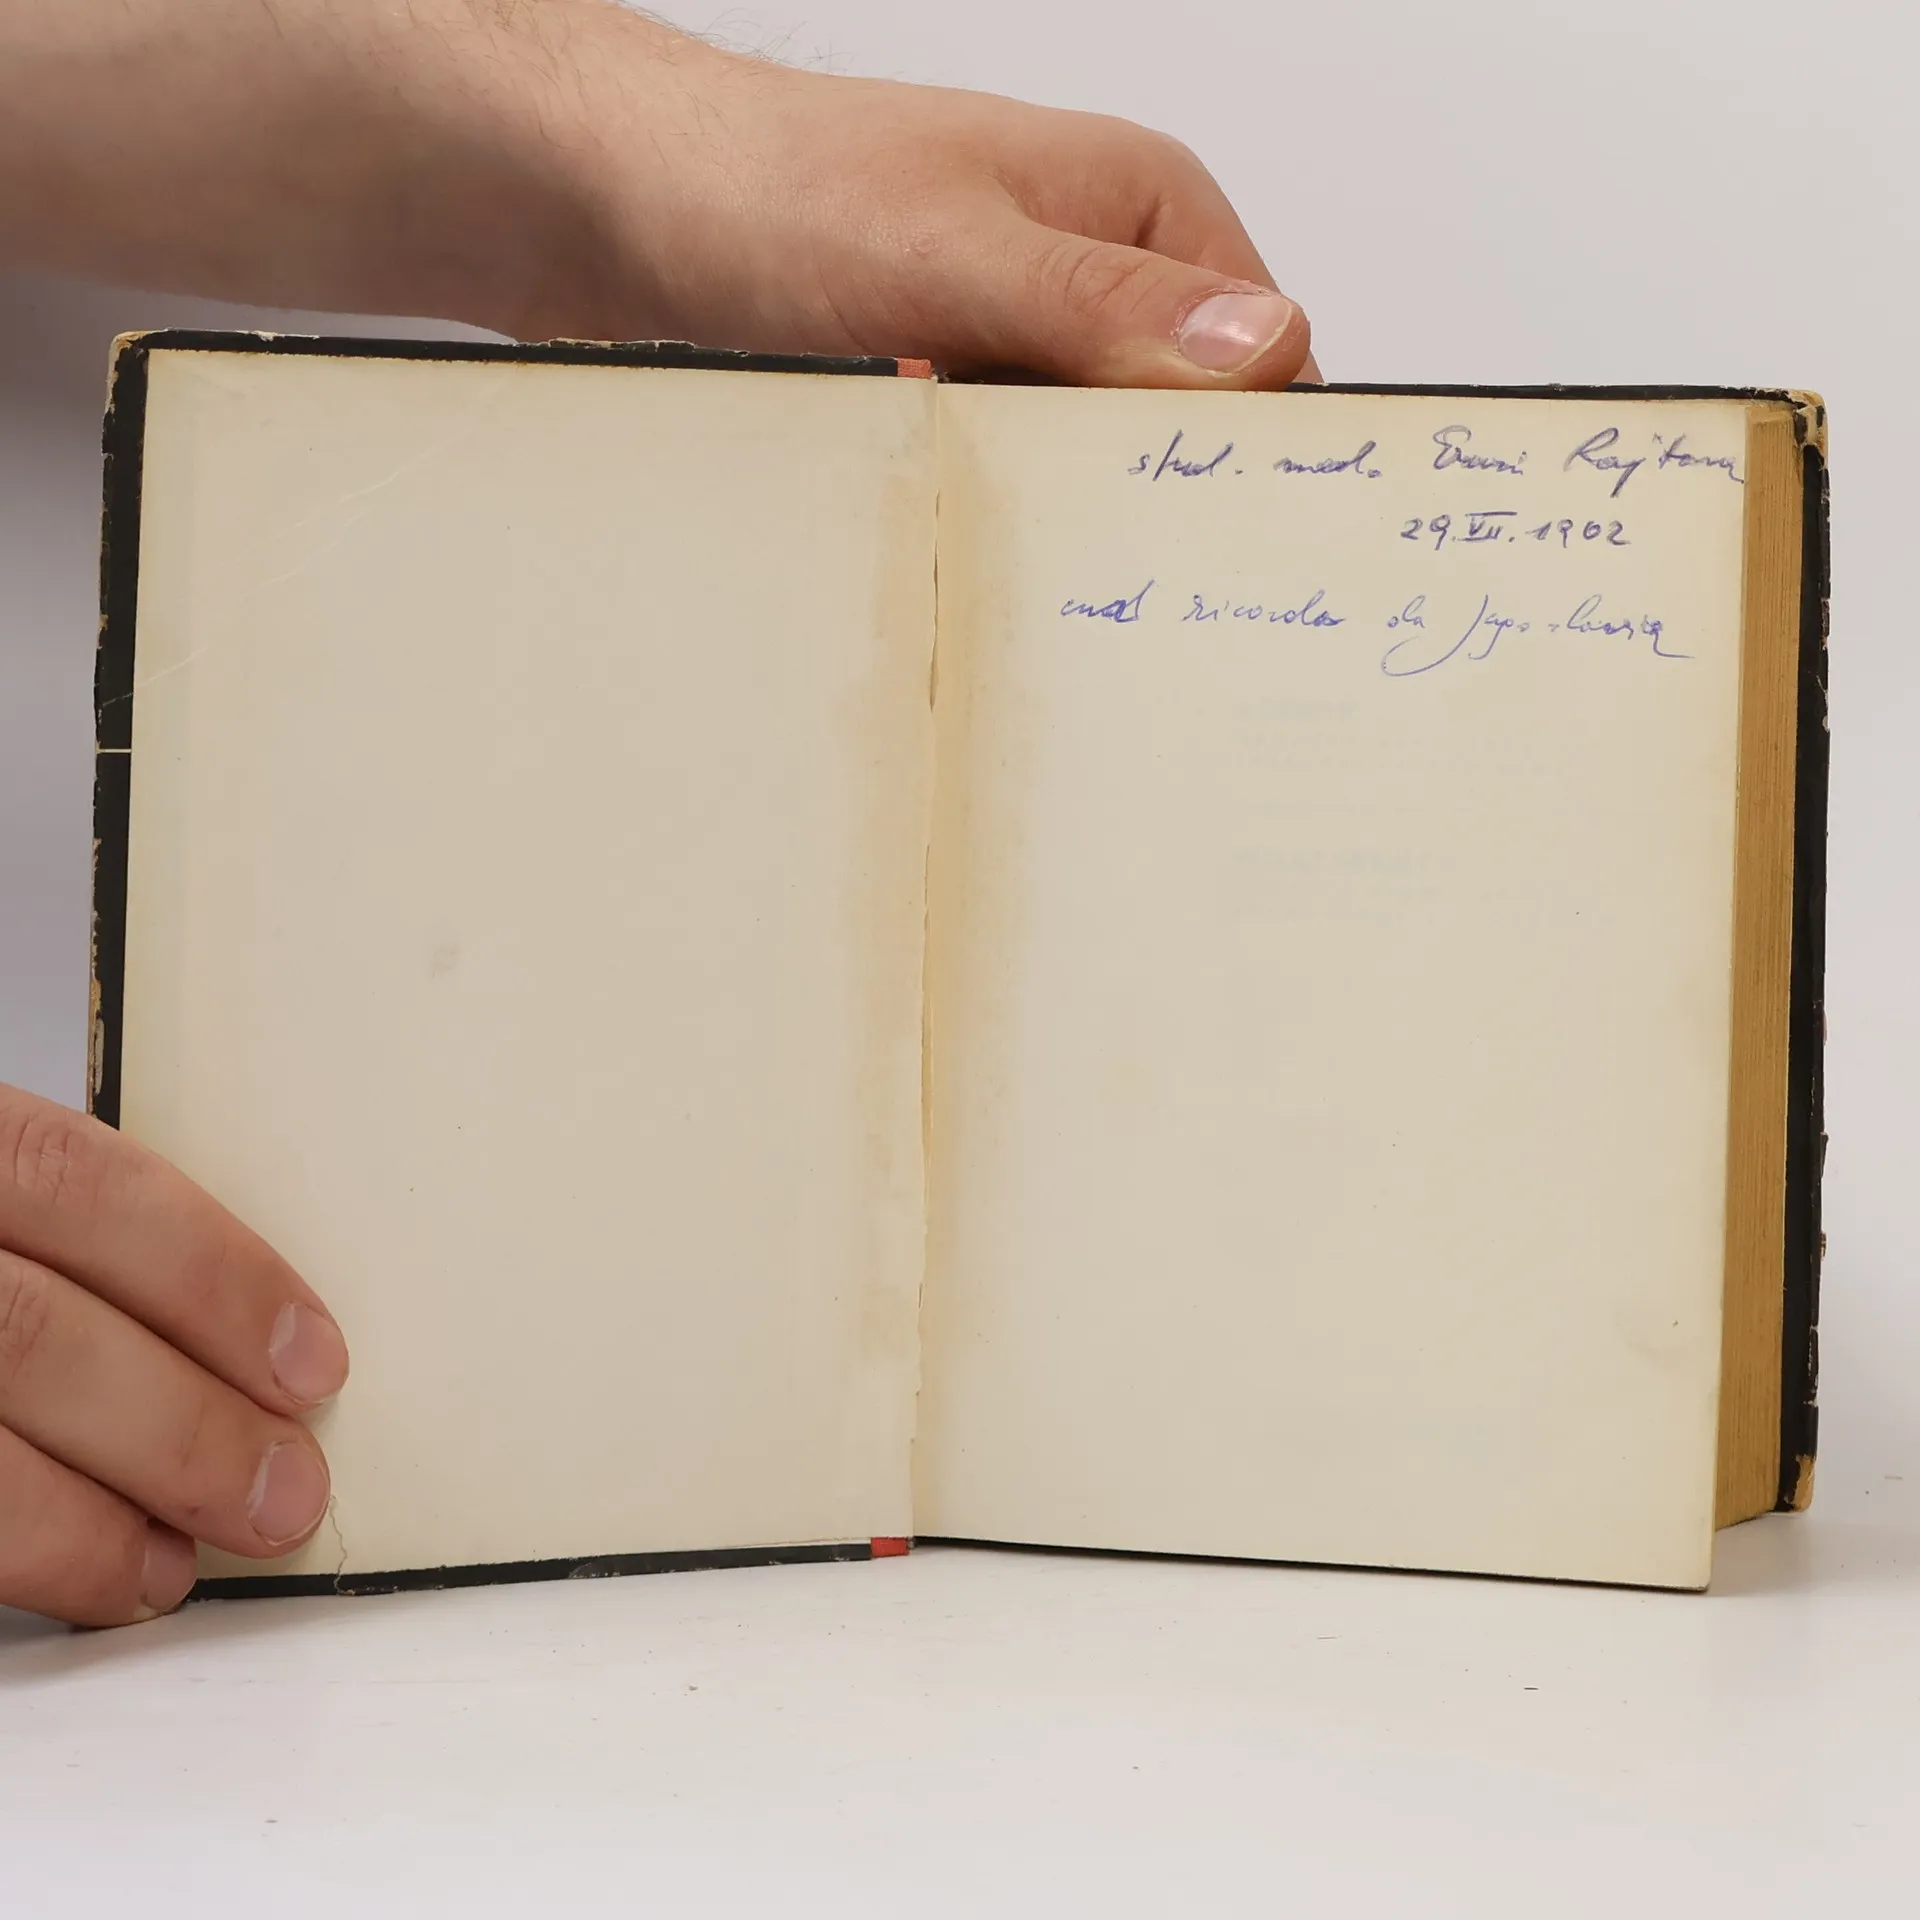 stud. med. Rajtova
29.VII. 1962
ricordo da Jugoslavia